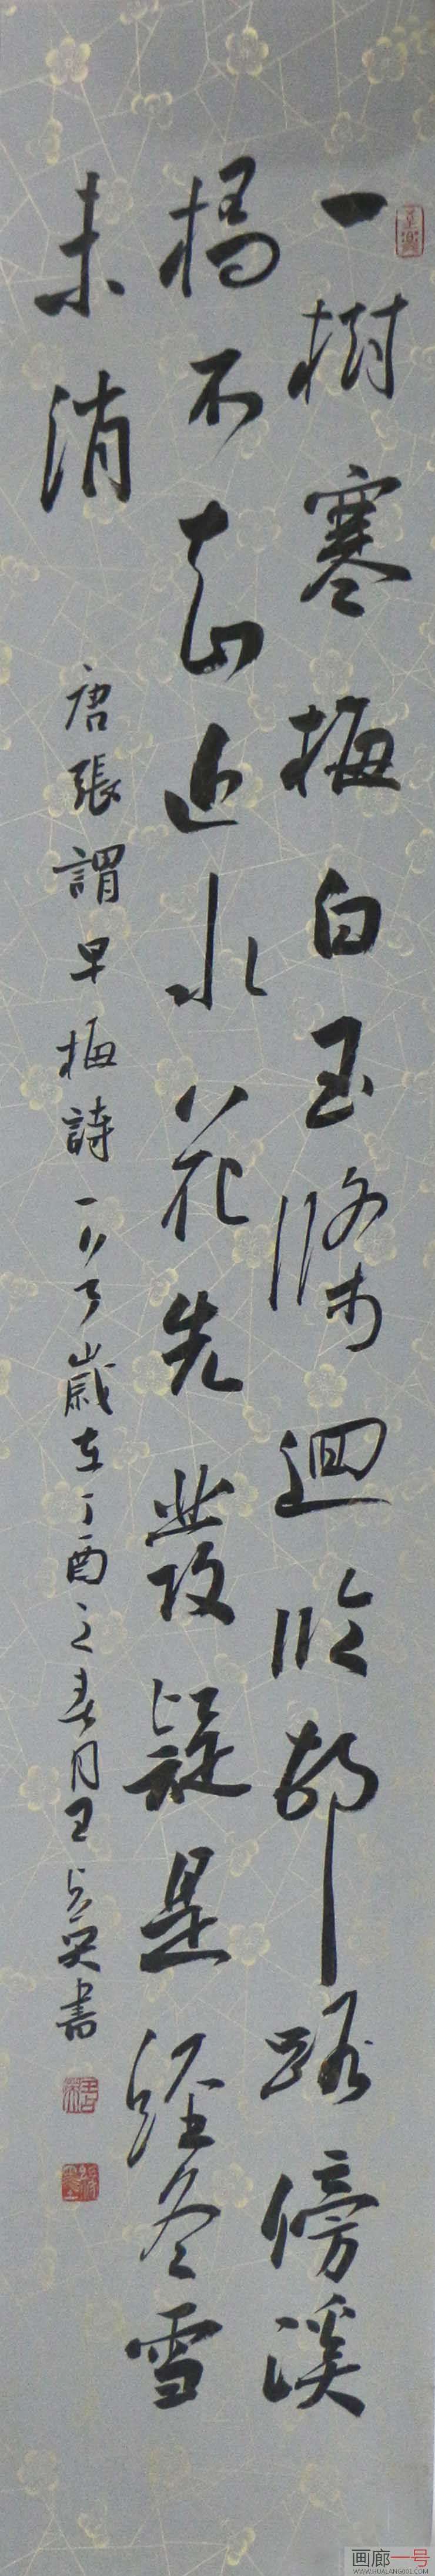 一樹寒梅白玉條迥臨村路傍溪
橋不知近水花先發疑是經冬雪
未消
唐張謂早梅詩一首歲在丁酉之春月王
書
画廊一号
WWW.HUALANG001.COM